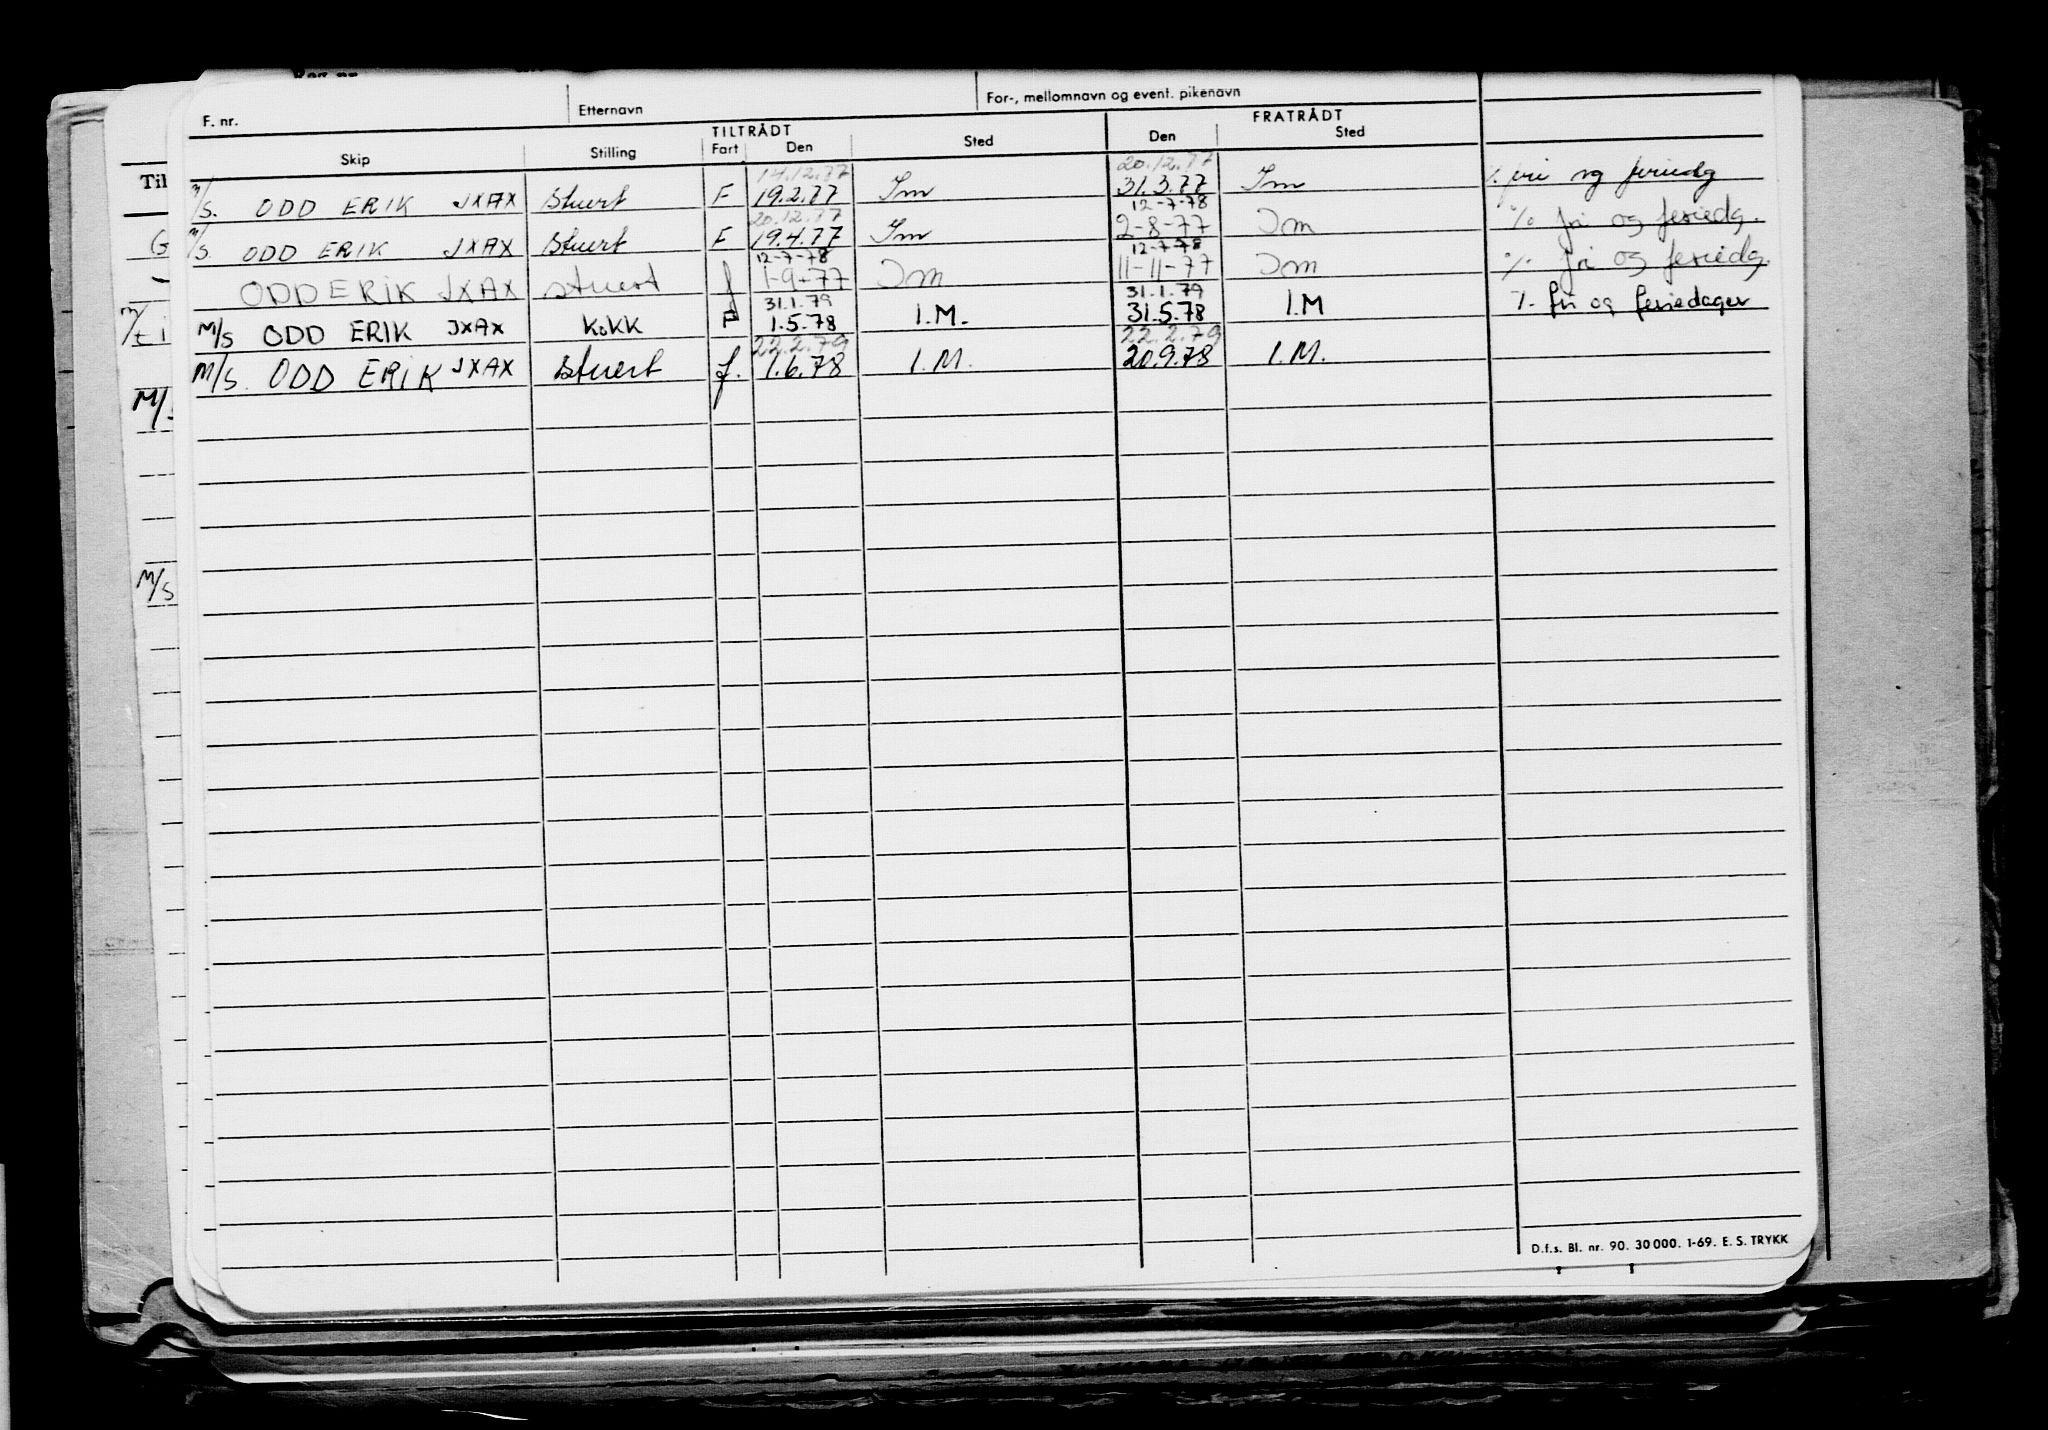 F. nr. Etternavn For-, mellomnavn og event. pikenavn
TILTRÅDT FRATRÅDT
Skip Stilling Fart Den Sted Den Sted
14.12.77 20.12.77
M/S. ODD ERIK JXAX Stuert F 19.2.77 Im 31.3.77 Im % fri og feriedg
20.12.77 12-7-78
M/S. ODD ERIK JXAX Stuert F 19.4.77 Im 2-8-77 Im % fri og feriedg.
12-7-78 12-7-78
ODD ERIK JXAX stuert f 1-9-77 Im 11-11-77 Im % fri og feriedg.
31.1.79 31.1.79
M/S ODD ERIK JXAX KOKK F 1.5.78 I.M. 31.5.78 I.M % fri og feriedager
22.2.79 22.2.79
M/S. ODD ERIK JXAX Stuert f. 1.6.78 I.M. 20.9.78 I.M.
Til
G
M/
M/S
D.f.s. Bl. nr. 90. 30 000. 1-69. E. S. TRYKK